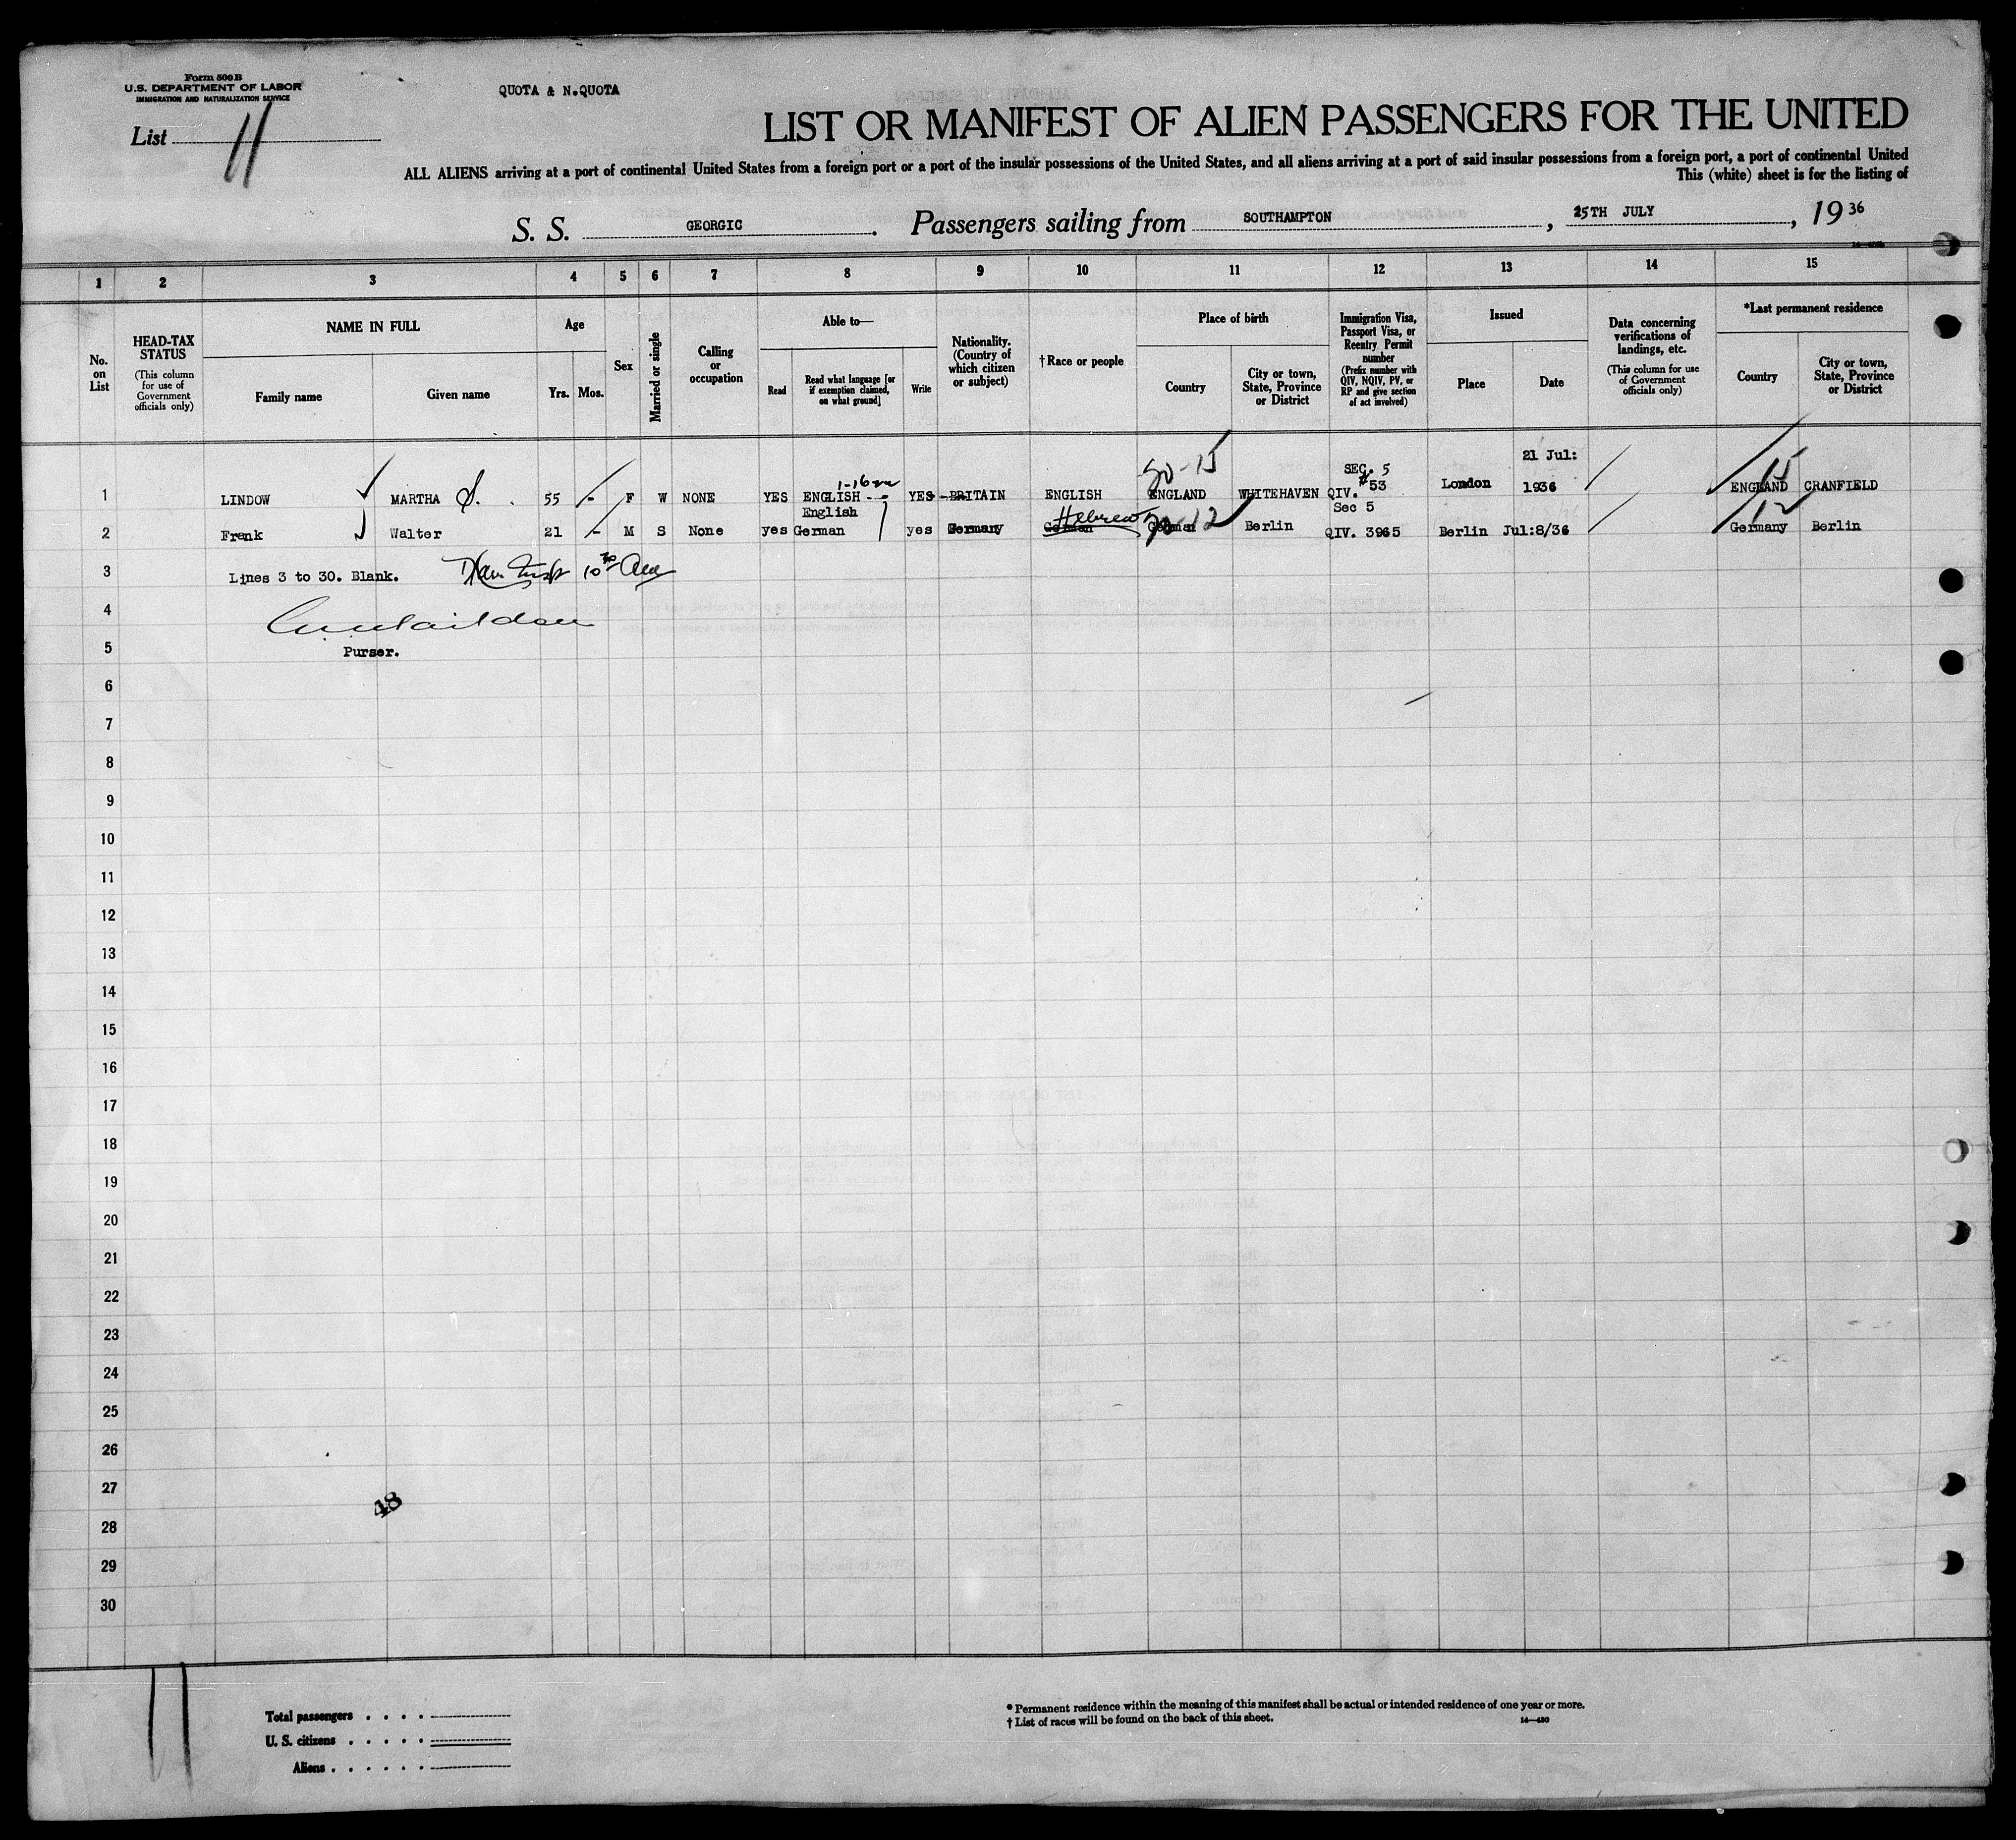 Form 500B
U.S. DEPARTMENT OF LABOR
IMMIGRATION AND NATURALIZATION SERVICE
QUOTA & N.QUOTA
List 11
LIST OR MANIFEST OF ALIEN PASSENGERS FOR THE UNITED
ALL ALIENS arriving at a port of continental United States from a foreign port or a port of the insular possessions of the United States, and all aliens arriving at a port of said insular possessions from a foreign port, a port of continental United
This (white) sheet is for the listing of
S. S. GEORGIC. Passengers sailing from SOUTHAMPTON, 25TH JULY, 19 36
1 2 3 4 5 6 7 8 9 10 11 12 13 14 15
No. on List
HEAD-TAX STATUS
(This column for use of Government officials only)
NAME IN FULL
Family name
Given name
Age
Yrs.
Mos.
Sex
Married or single
Calling or occupation
Able to—
Read
Read what language [or if exemption claimed, on what ground]
Write
Nationality. (Country of which citizen or subject)
† Race or people
Place of birth
Country
City or town, State, Province or District
Immigration Visa, Passport Visa, or Reentry Permit number
(Prefix number with QIV, NQIV, PV, or RP and give section of act involved)
Issued
Place
Date
Data concerning verifications of landings, etc.
(This column for use of Government officials only)
*Last permanent residence
Country
City or town, State, Province or District
20-15
21 Jul:
SEC. 5
15
1 LINDOW MARTHA S. 55 - F W NONE YES ENGLISH YES BRITAIN ENGLISH ENGLAND WHITEHAVEN QIV. #53 London 1936 ENGLAND CRANFIELD
English
Hebrew
Sec 5
12
2 Frank Walter 21 - M S None yes German yes Germany German German 20-12 Berlin QIV. 3965 Berlin Jul:8/36 Germany Berlin
3 Lines 3 to 30. Blank.
4
5 Purser.
6
7
8
9
10
11
12
13
14
15
16
17
18
19
20
21
22
23
24
25
26
27
48
28
29
30
11
Total passengers
U. S. citizens
Aliens
* Permanent residence within the meaning of this manifest shall be actual or intended residence of one year or more.
† List of races will be found on the back of this sheet.
14—430